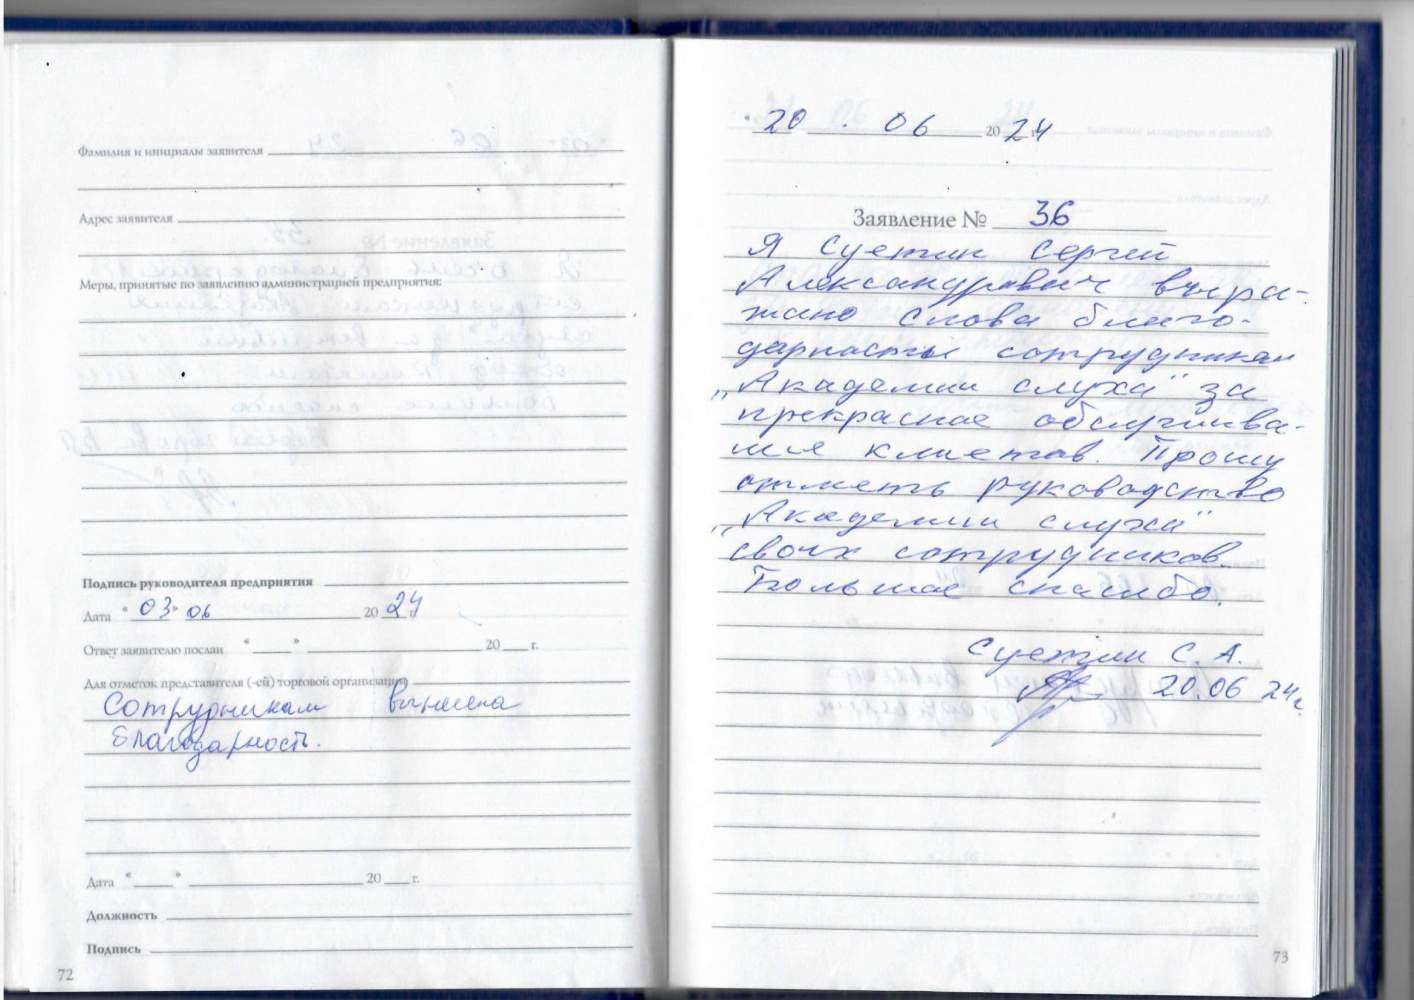 Фамилия и инициалы заявителя
Адрес заявителя
Меры, принятые по заявлению администрацией предприятия:
Подпись руководителя предприятия
Дата "03" 06 2024 г.
Ответ заявителю послан " " 20 г.
Для отметок представителя (-ей) торговой организации
Сотрудникам вынесена
благодарность.
Дата " " 20 г.
Должность
Подпись
72
"20 . 06 2024 г.
Заявление № 36
Я Суетин Сергей
Александрович выра-
жаю слова благо-
дарность сотрудникам
"Академии слуха" за
прекрасное обслужива-
ния клиетов. Прошу
отметь руководство
"Академии слуха"
своих сотрудников.
Большое спасибо.
Суетин С. А.
20.06 24г.
73